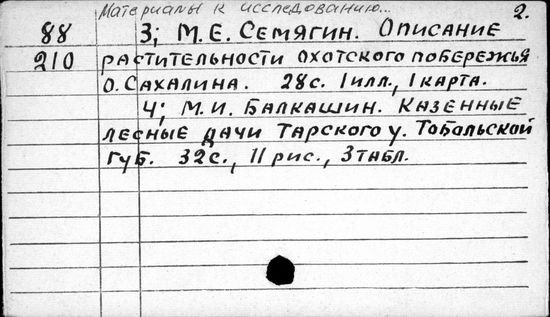 Материалы к исследованию... 2.
88 3; М.Е. Семягин. Описание
210 растительности охотского побережья
о. Сахалина. 28с. 1 илл., 1 карта.
4; М.И. Балкашин. Казенные
лесные дачи Тарского у. Тобольской
губ. 32с., 11 рис., 3 табл.